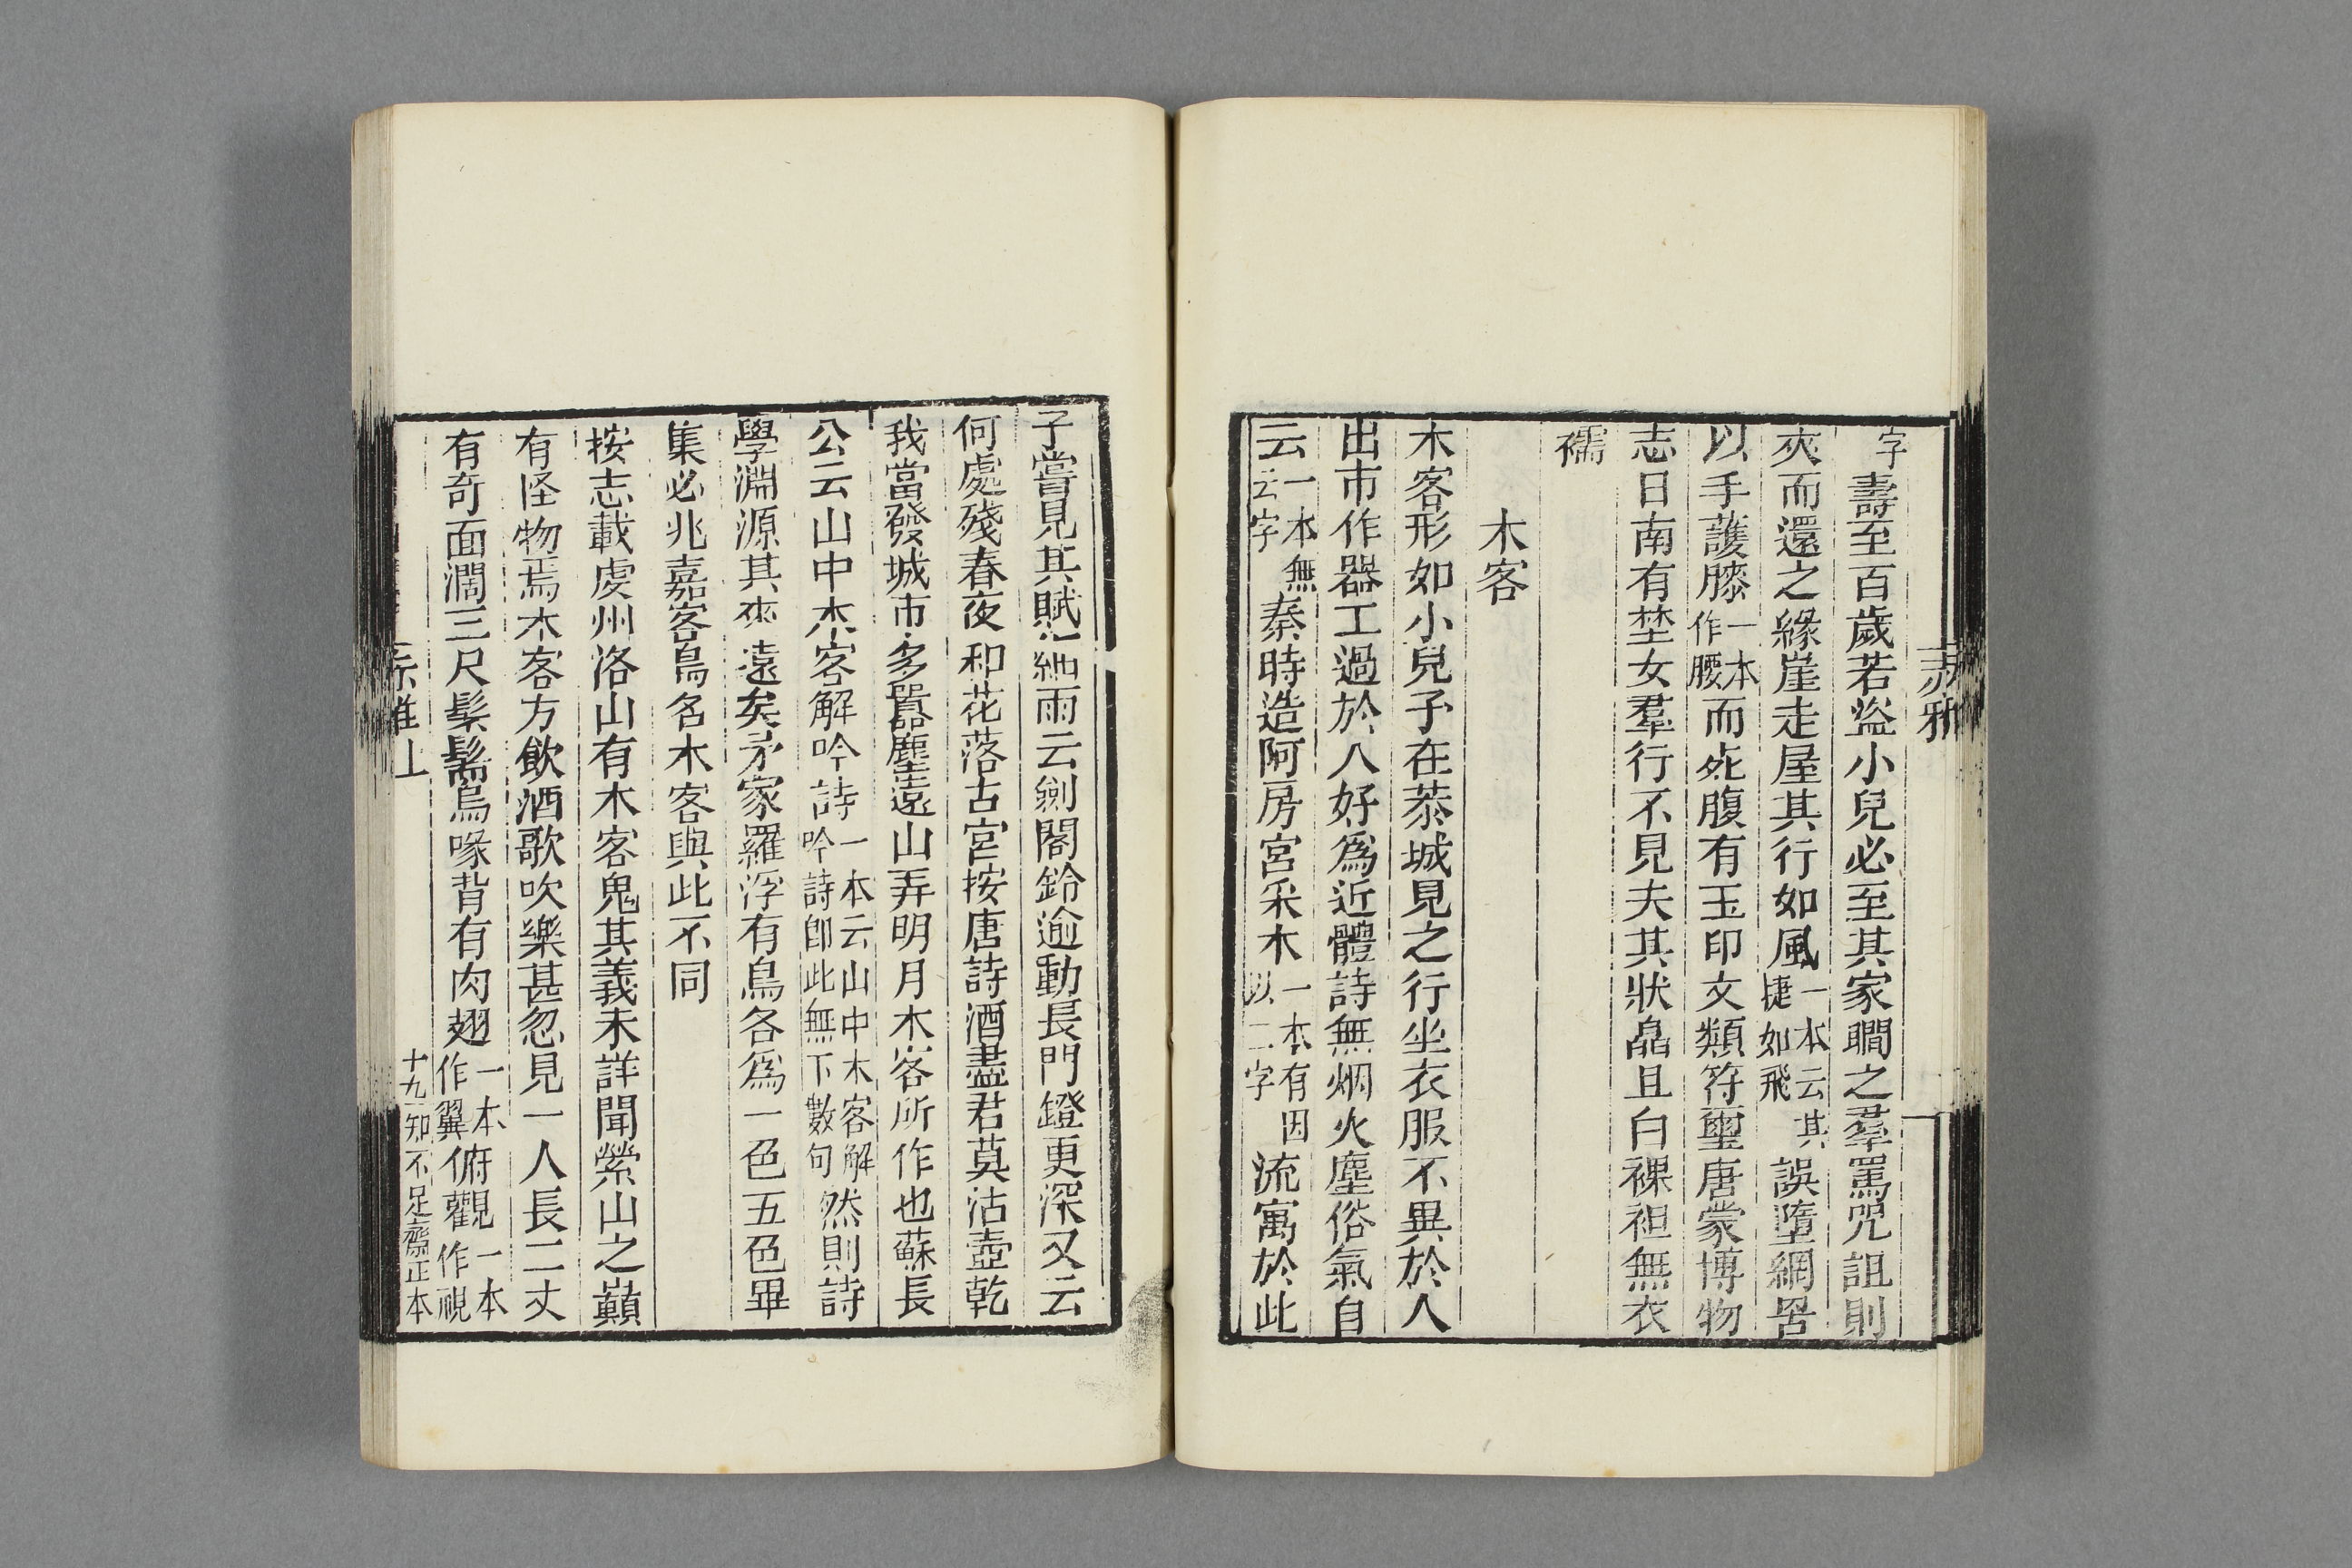 赤雅
字壽至百歲若盜小兒必至其家瞷之羣罵咒詛則
夾而還之緣崖走屋其行如風一本云其捷如飛誤墮網罟
以手護膝一本作腰而死腹有玉印文類符璽唐蒙博物
志日南有埜女羣行不見夫其狀皛且白裸袒無衣
襦
木客
木客形如小兒予在恭城見之行坐衣服不異於人
出市作器工過於人好爲近體詩無烟火塵俗氣自
云一本無云字秦時造阿房宮采木一本有因以二字流寓於此
子嘗見其賦細雨云劍閣鈴逾動長門鐙更深又云
何處殘春夜和花落古宮按唐詩酒盡君莫沽壺乾
我當發城市多囂塵還山弄明月木客所作也蘇長
公云山中木客解吟詩一本云山中木客解吟詩卽此無下數句然則詩
學淵源其來遠矣予家羅浮有鳥各爲一色五色畢
集必兆嘉客鳥名木客與此不同
按志載虔州洛山有木客鬼其義未詳聞縈山之巔
有怪物焉木客方飮酒歌吹樂甚忽見一人長二丈
有奇面濶三尺髼鬙烏喙背有肉翅一本作翼俯觀一本觀作視
赤雅上
十九知不足齋正本